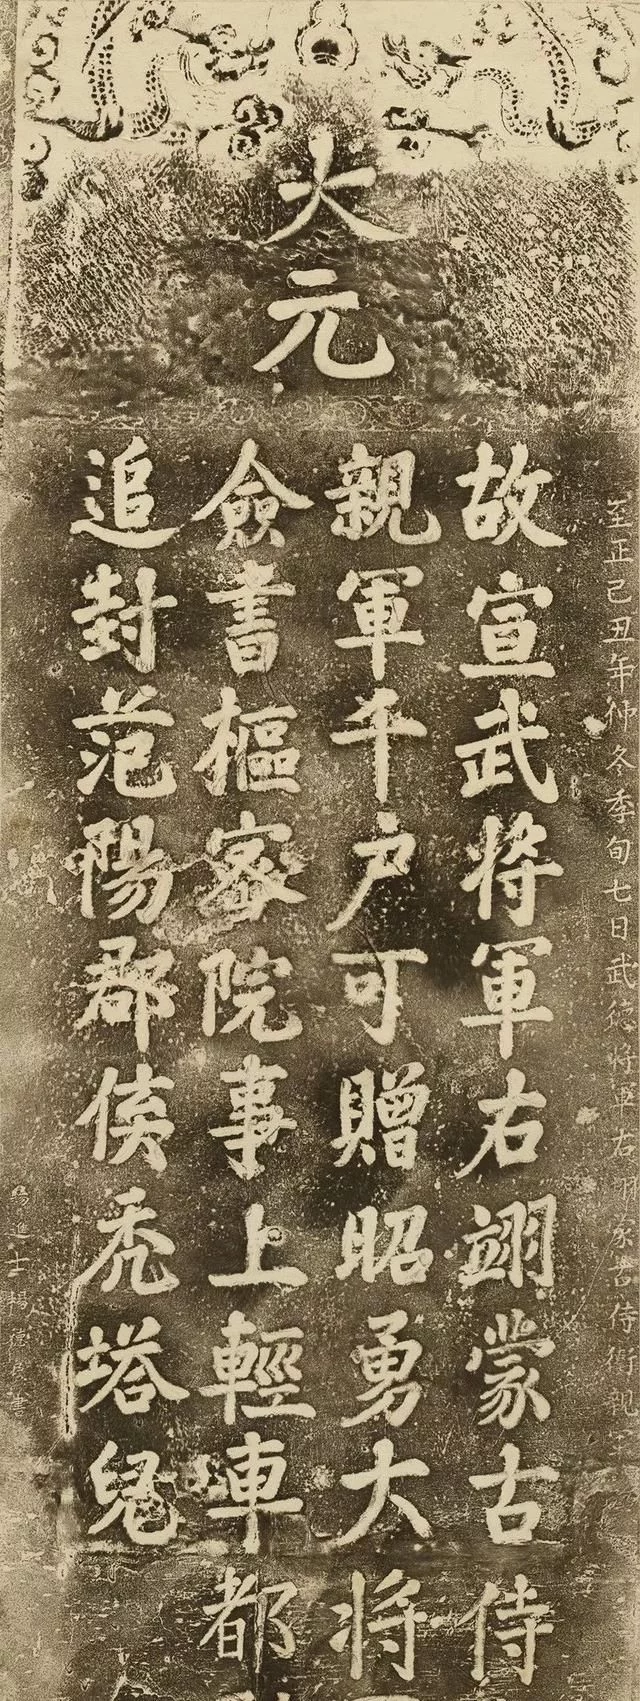 大元
至正己丑年仲冬季旬七日武德將軍右翊蒙古侍衛親
故宣武将軍右翊蒙古侍
親軍千户可贈昭勇大将
僉書樞密院事上輕車都
追封范陽郡侯禿塔兒
進士楊德書